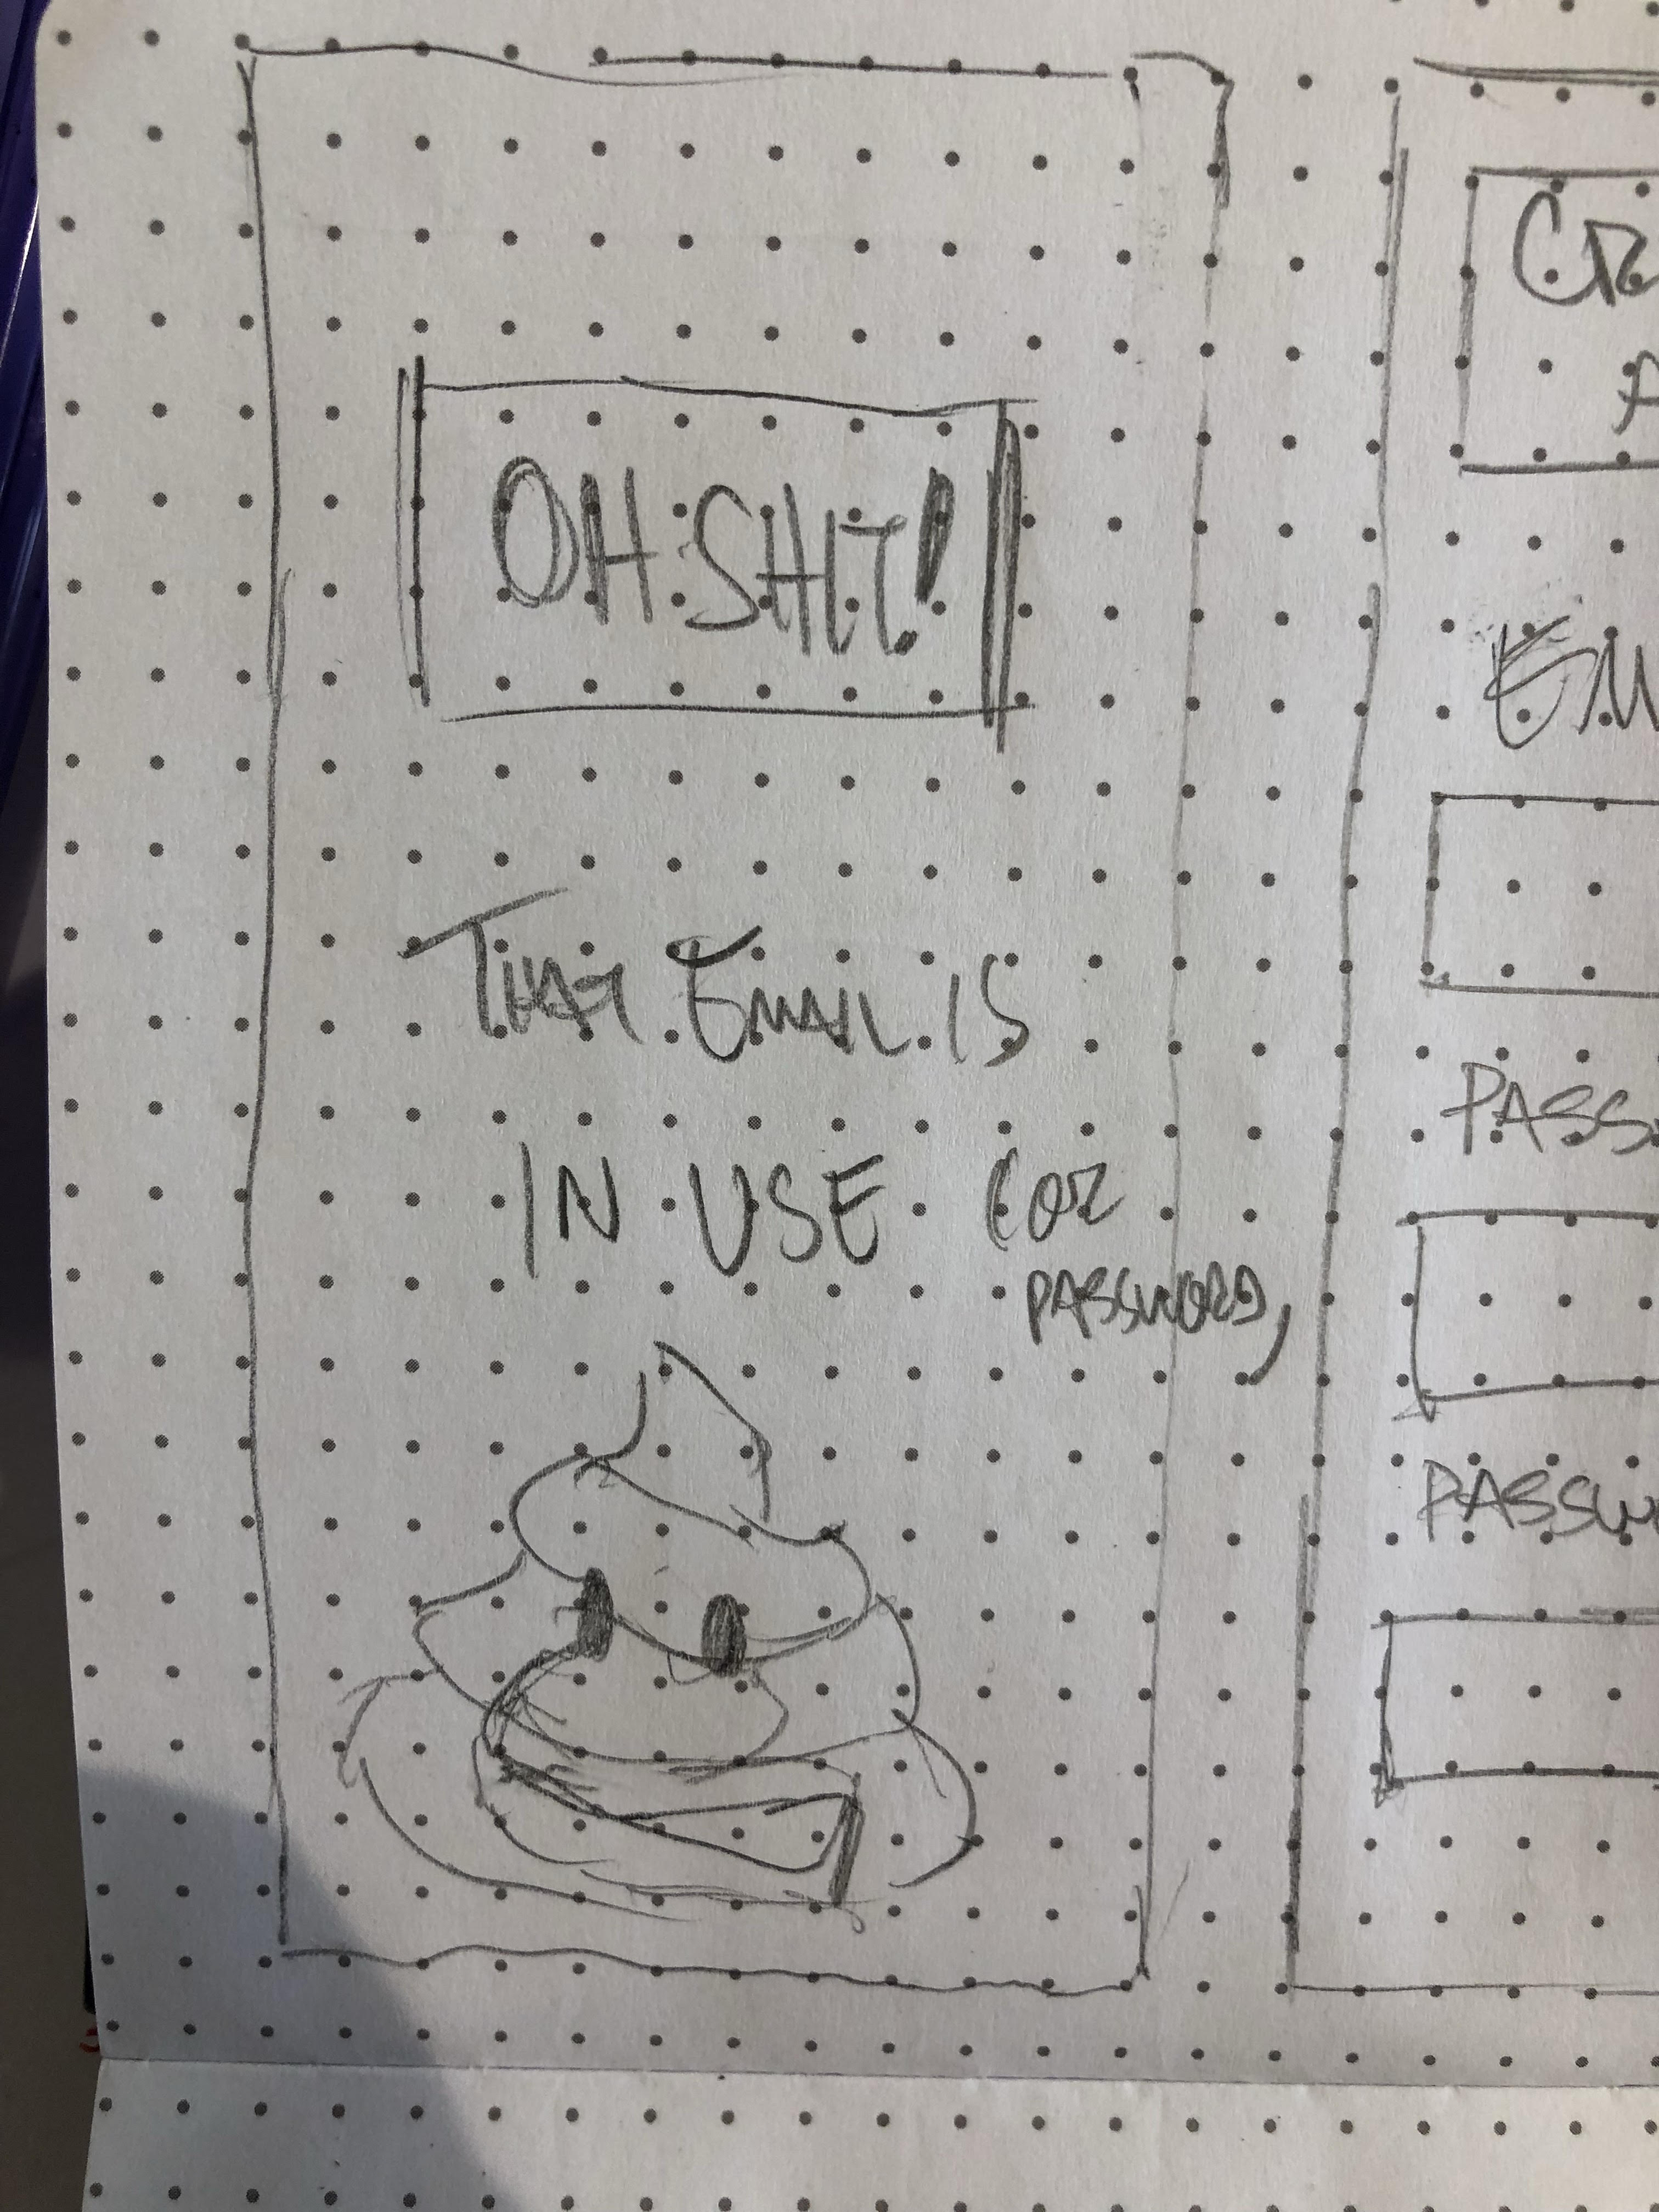 OH SHIT!
THAT EMAIL IS
IN USE (OR
PASSWORD,
CR
A
EM
PASSW
PASSW